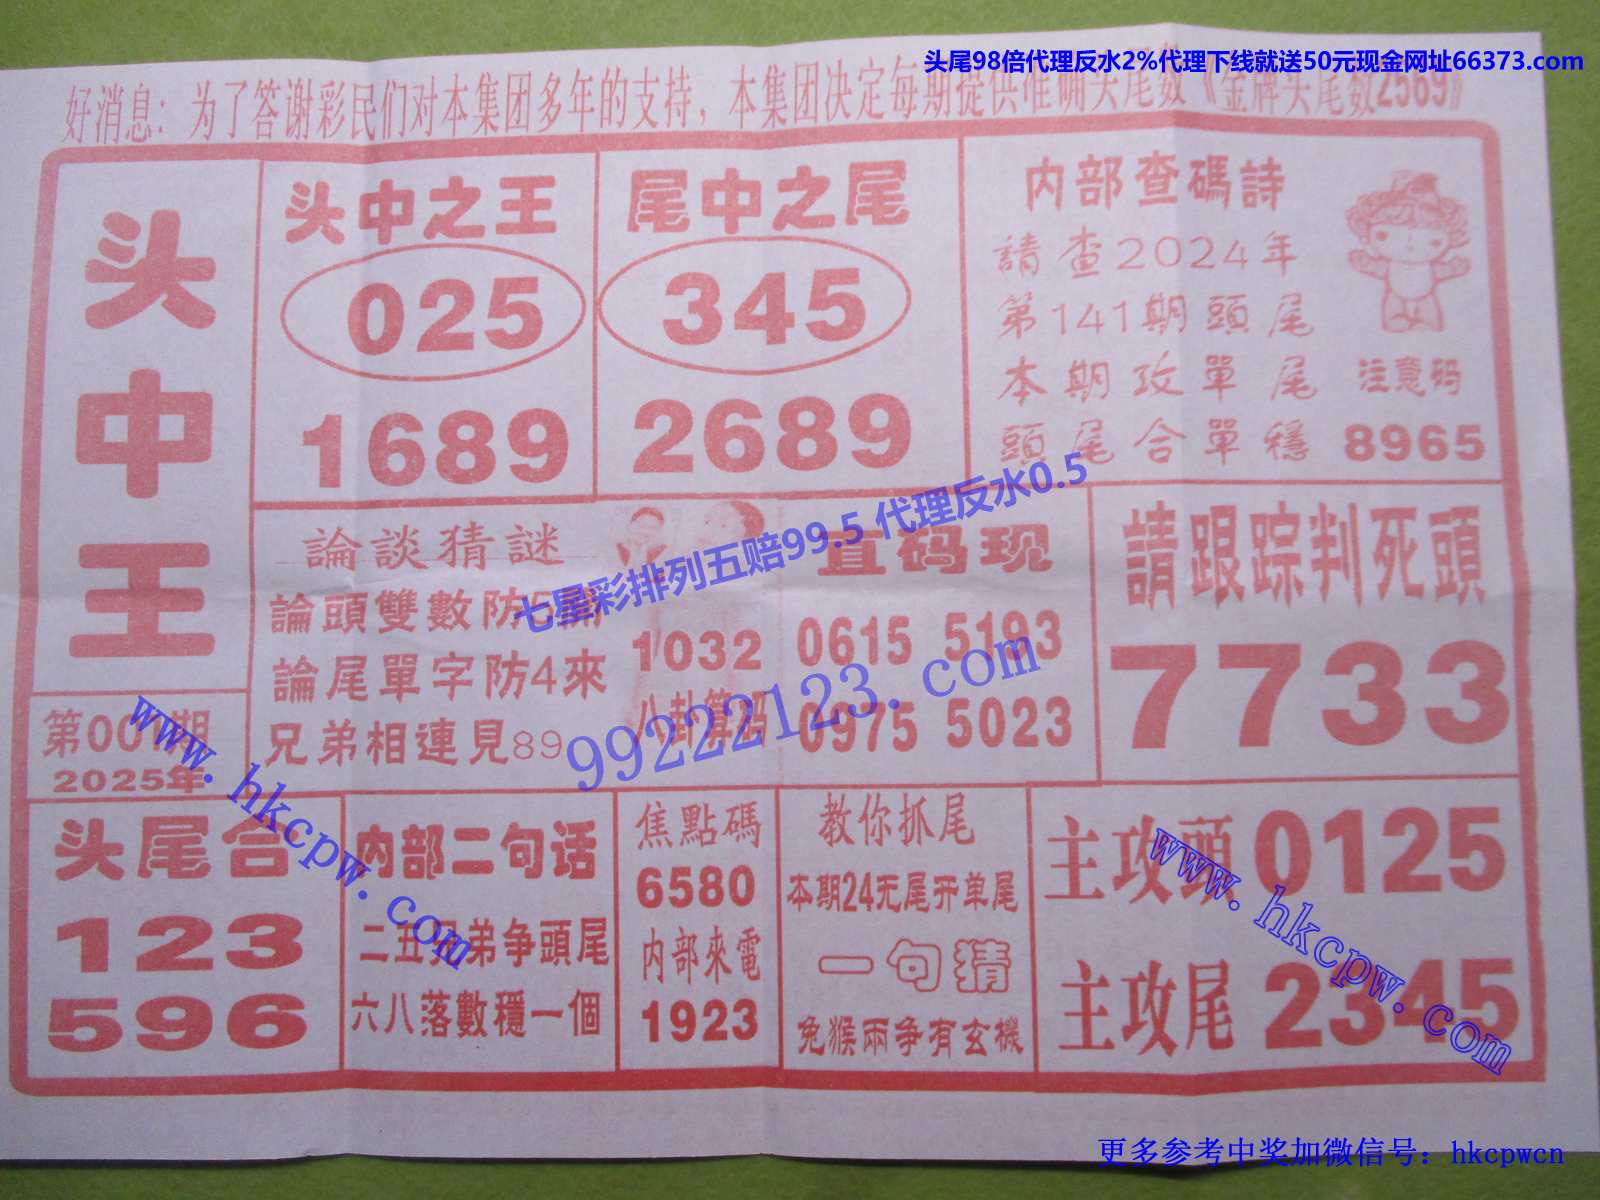 头尾98倍代理反水2%代理下线就送50元现金网址66373.com
好消息：为了答谢彩民们对本集团多年的支持，本集团决定每期提供准确头尾数《金牌头尾数2569》
头中王
第001期
2025年
头中之王
025
1689
尾中之尾
345
2689
内部查碼詩
請查2024年
第141期頭尾
本期攻單尾
頭尾合單穩
注意码
8965
論談猜謎
論頭雙數防5開
論尾單字防4來
兄弟相連見89
1032
八卦算码
直码现
0615 5193
0975 5023
請跟踪判死頭
7733
七星彩排列五赔99.5 代理反水0.5
99222123.com
www.hkcpw.com
头尾合
123
596
内部二句话
二五兄弟争頭尾
六八落數穩一個
焦點碼
6580
内部來電
1923
教你抓尾
本期24无尾开单尾
一句猜
兔猴兩争有玄機
主攻頭 0125
主攻尾 2345
www.hkcpw.com
更多参考中奖加微信号：hkcpwcn